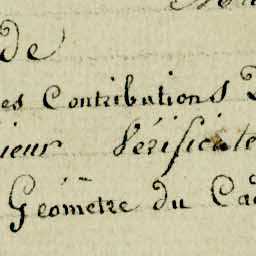 de
es Contributions
ieur Vérificate
Géometre du Cad